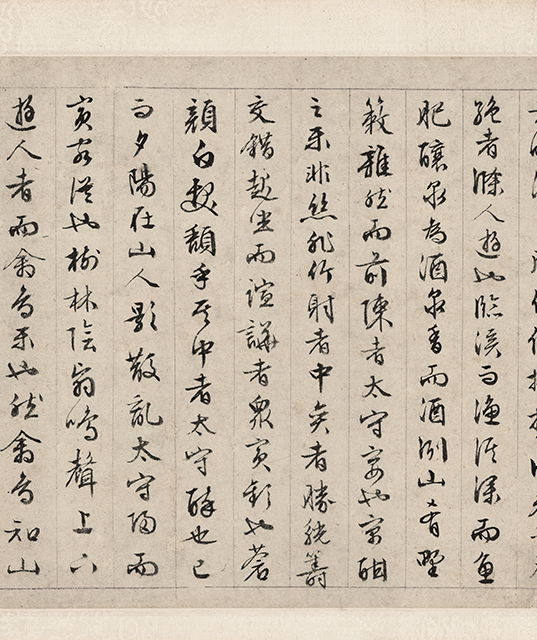 絕者滁人遊也臨溪而漁溪深而魚
肥釀泉為酒泉香而酒冽山肴野
蔌雜然而前陳者太守宴也宴酣
之樂非絲非竹射者中奕者勝觥籌
交錯起坐而諠譁者衆賓歡也蒼
顏白髮頹乎其中者太守醉也已
而夕陽在山人影散亂太守歸而
賓客從也樹林陰翳鳴聲上下
遊人者而禽鳥樂也然禽鳥知山